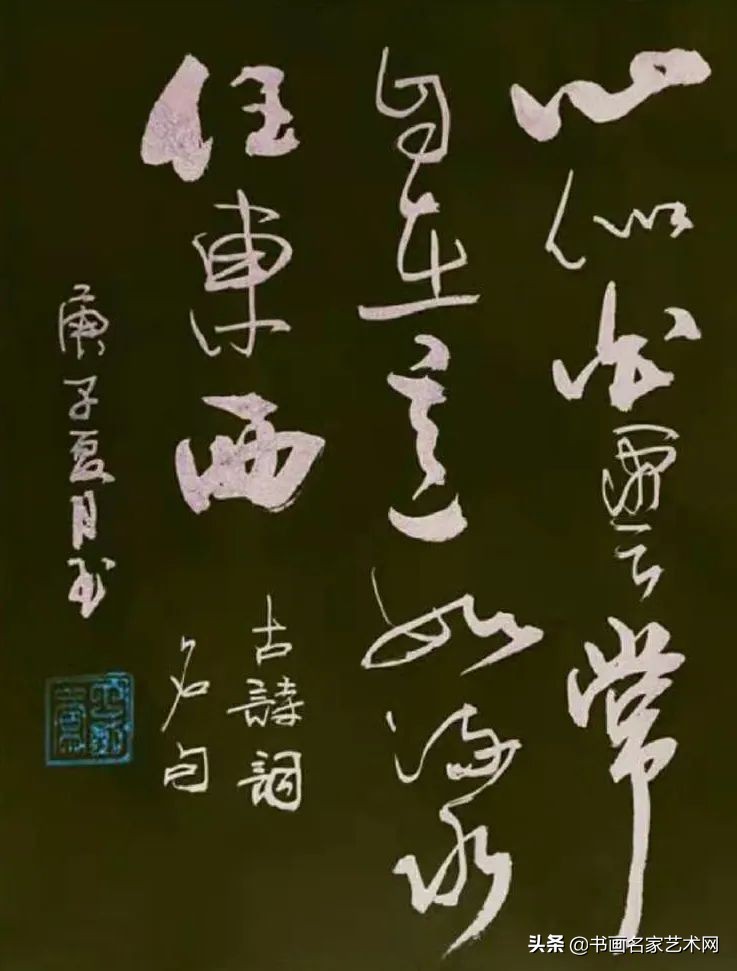 心似浮雲常
自在意如流水
任東西
古詩詞
名句
庚子夏月玉
头条 @书画名家艺术网